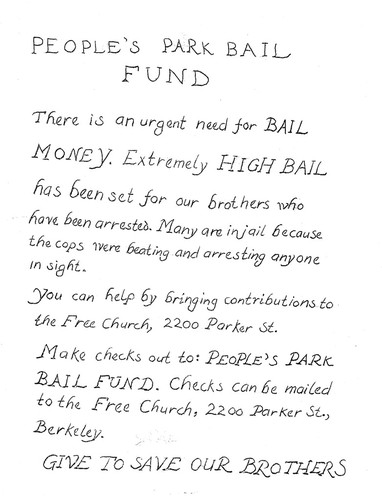 PEOPLE'S PARK BAIL
FUND
There is an urgent need for BAIL
MONEY. Extremely HIGH BAIL
has been set for our brothers who
have been arrested. Many are in jail because
the cops were beating and arresting anyone
in sight.
You can help by bringing contributions to
the Free Church, 2200 Parker St.
Make checks out to: PEOPLE'S PARK
BAIL FUND. Checks can be mailed
to the Free Church, 2200 Parker St.,
Berkeley.
GIVE TO SAVE OUR BROTHERS